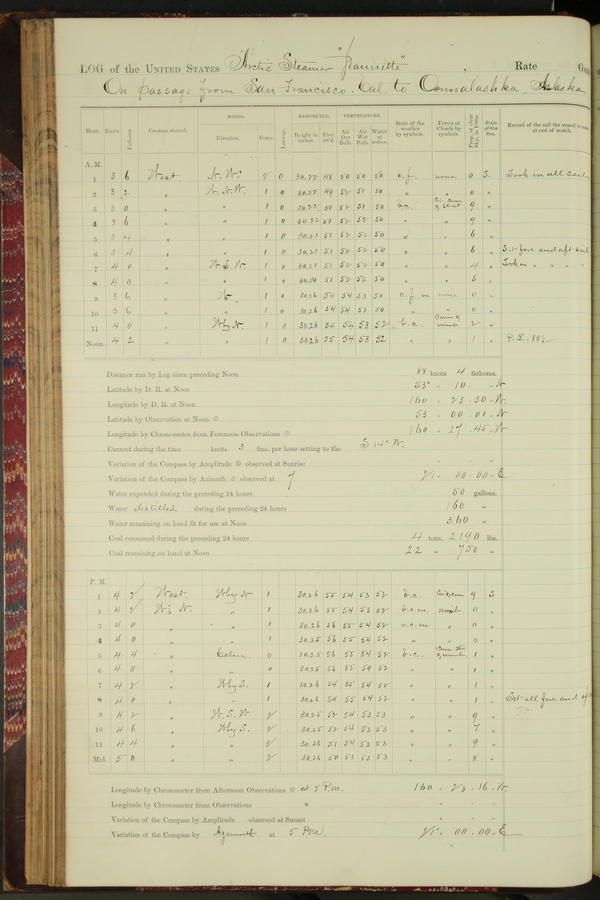 LOG of the UNITED STATES Arctic Steamer "Jeannette", Rate
On passage from San Francisco. Cal. to Oonalashka Alaska
WINDS. BAROMETER. TEMPERATURE.
Hour. Knots. Fathoms. Courses steered. Direction. Force. Leeway. Height in inches. Ther. att'd. Air Dry Bulb. Air Wet Bulb. Water at surface. State of the weather by symbols. Forms of Clouds by symbols. Prop. of clear Sky, in 10ths. State of the Sea. Record of the sail the vessel is under at end of watch.
A.M.
1 3 6 West 2 0 30.22 48 50 50 50 o.f. none 0 S. Took in all sail
2 3 2 " W.N.W. 1 0 30.22 49 52 51 50 " " 0 "
3 3 0 " " 1 0 30.22 50 52 51 50 9 "
4 3 6 " " 1 0 30.22 51 52 52 50 " " 9 "
5 3 4 " " 1 0 30.21 51 52 52 50 " " 6 "
6 3 4 " " 1 0 30.21 51 52 52 50 " " 6 " Set fore and aft sail
7 4 0 " W.S.W. 1 0 30.21 51 52 52 50 " " 4 " Took in " " "
8 4 0 " " 1 0 51 52 52 50 " " 5 "
9 3 6 " 1 0 30.26 54 54 53 50 o.f.m none 0 "
10 3 6 " " 1 0 30.26 54 54 53 50 " " 0 "
11 4 0 " W by N. 1 0 30.26 54 54 53 52 b.c. 2 "
Noon. 4 2 " " 1 0 30.26 55 54 53 52 " " 1 " P.L. 88½
Distance run by Log since preceding Noon 88 knots 4 fathoms.
Latitude by D. R. at Noon 53° " 10 " " N
Longitude by D. R. at Noon 160 " 23 " 30 " W.
Latitude by Observation at Noon 53 " 00 " 01 " N
Longitude by Chronometer from Forenoon Observations 160 " 27 " 45 " W
Current during the time knots 3 fms. per hour setting to the S 14° W.
Variation of the Compass by Amplitude observed at Sunrise
Variation of the Compass by Azimuth observed at 7 21 " 00 " 00 " E
Water expended during the preceding 24 hours 50 gallons.
Water distilled during the preceding 24 hours 160 "
Water remaining on hand fit for use at Noon 360 "
Coal consumed during the preceding 24 hours 4 tons. 2190 lbs.
Coal remaining on hand at Noon 22 " 750 "
P.M.
1 4 2 West. W by N 1 30.26 55 54 53 52 b.c. 9 S
2 4 2 W ½ N. " 1 30.26 55 54 53 52 b.c.m. 0 "
3 4 0 " " 1 30.26 56 55 54 52 o.c.m. " 0 "
4 4 0 " " 1 30.25 56 55 54 52 " " 0 "
5 4 4 " Calm 0 30.25 56 55 54 52 b.c. 1 "
6 4 0 " " 0 30.25 56 55 54 52 " " 1 "
7 4 2 " W by S. 1 30.26 54 55 54 52 " " 1 "
8 4 0 " " 1 30.26 54 55 54 52 " " 1 " Set all fore and aft
9 4 2 " W.S.W. 2 30.25 52 54 53 53 " " 9 "
10 4 6 " W by S. 2 30.25 52 54 53 53 " " 7 "
11 4 4 " " 2 30.26 51 54 53 53 " " 9 "
Mid. 5 0 " " 2 30.26 50 53 52 53 " " 8 "
Longitude by Chronometer from Afternoon Observations at 5 P.m. 160 " 28 " 16 " W.
Longitude by Chronometer from Observations
Variation of the Compass by Amplitude observed at Sunset
Variation of the Compass by Azimuth at 5 P.M. 21 " 00 " 00 " E